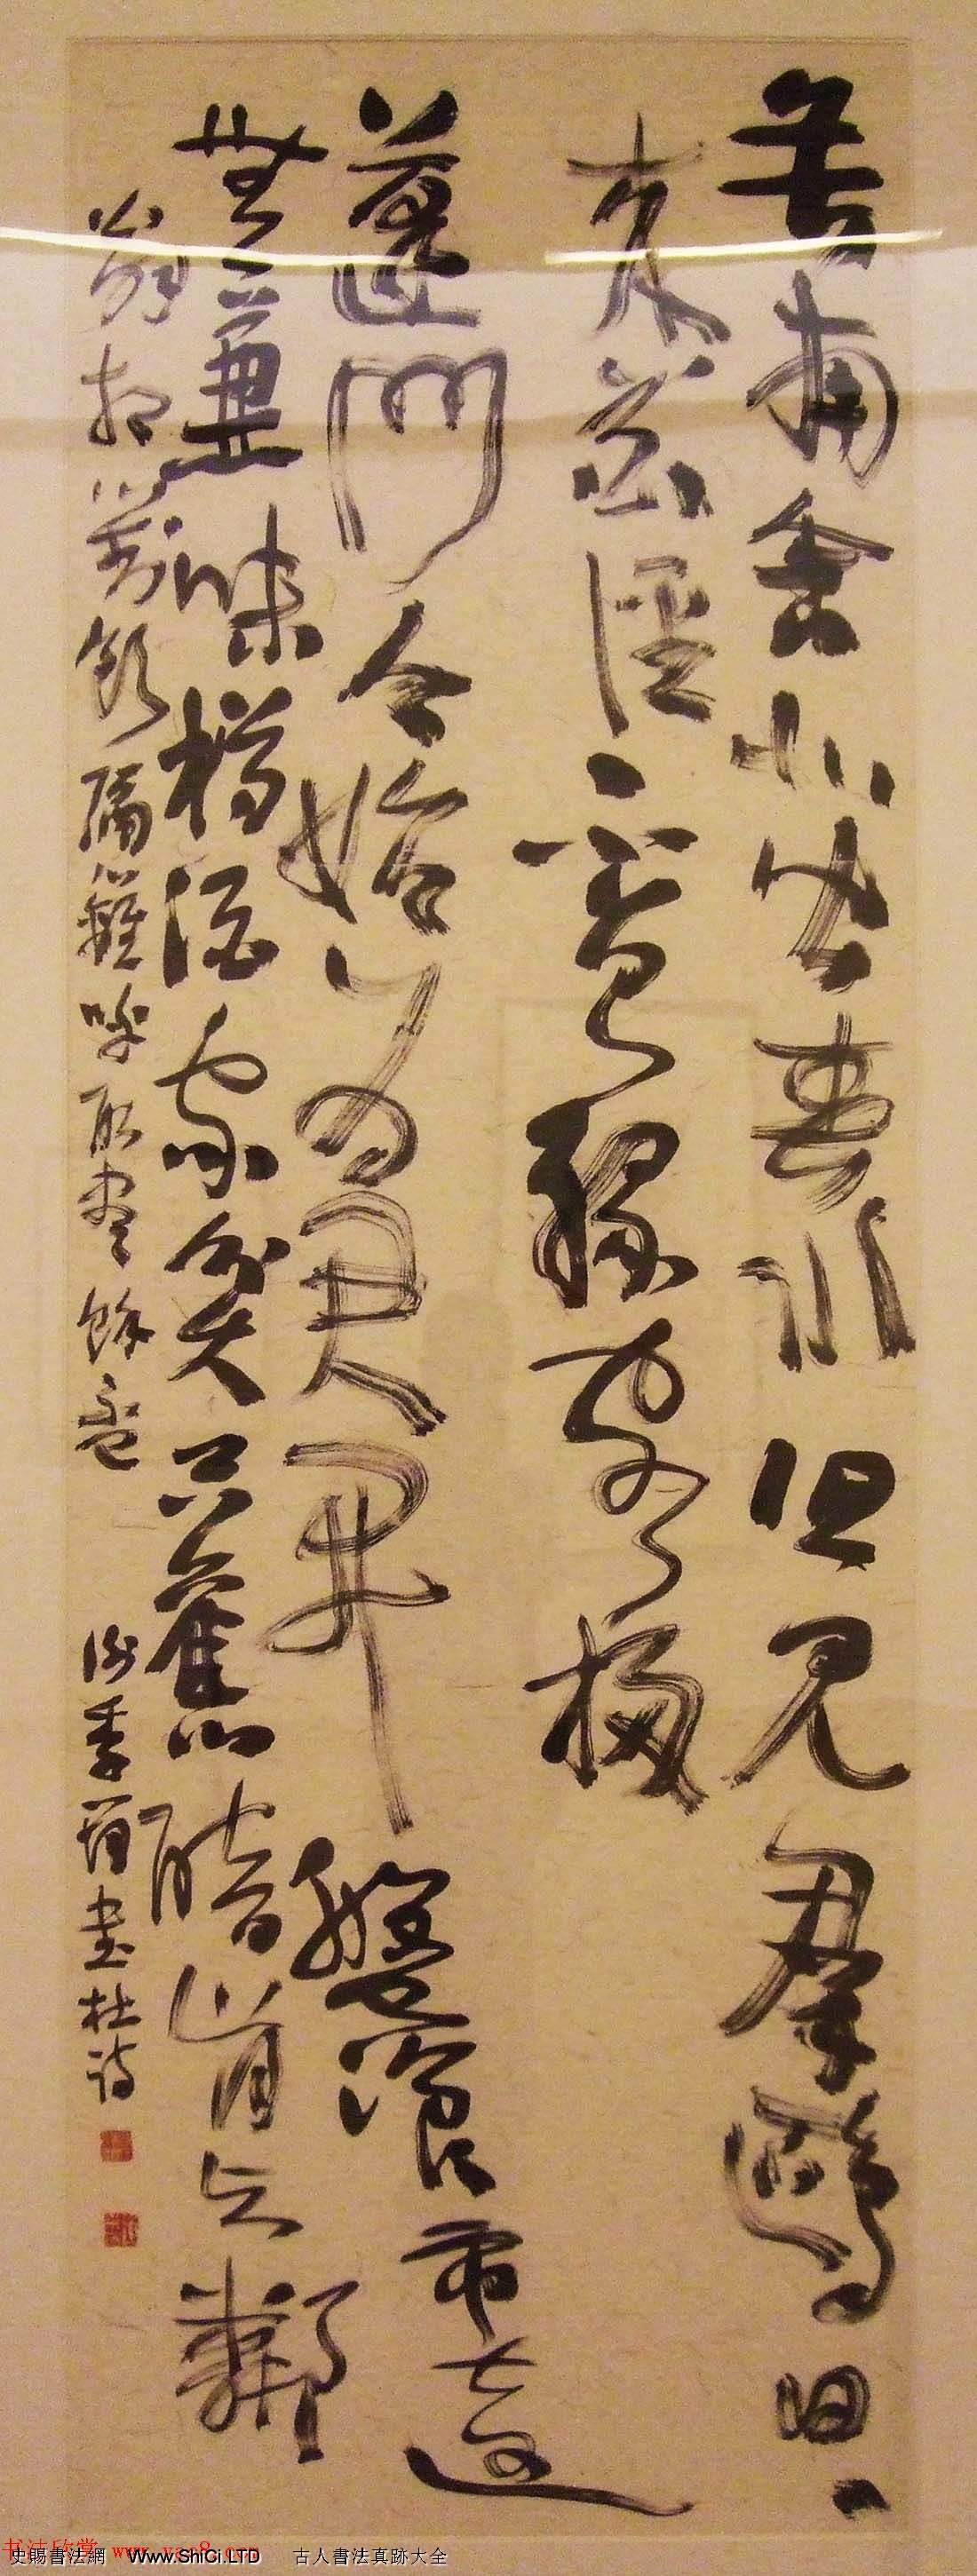 舍南舍北皆春水但見羣鷗日〻
來花徑不曾緣客掃
蓬門今始為君開盤飧市遠
無兼味樽酒家貧只舊醅肯與鄰
翁相對飲隔籬呼取盡餘盃 季書杜詩
书法欣赏 www.yac8.com
史賜書法網 Www.ShiCi.LTD 古人書法真跡大全